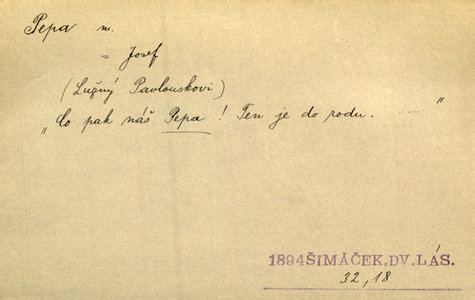 Pepa m.
= Josef
(Lužný Pavlouskovi)
„Co pak náš Pepa! Ten je do rodu. ..... "
1894ŠIMÁČEK,DV.LÁS.
32,18